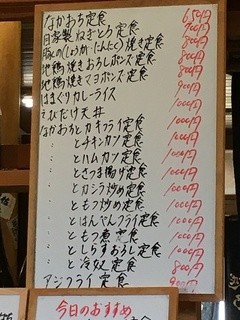 なかおち定食 650円
自家製ねぎとろ定食 700円
豚の(しょうが・にんにく)焼き定食 800円
地鶏焼きおろしポンズ定食 800円
地鶏焼きマヨポンズ定食 800円
はまぐりカレーライス 900円
えびだけ天丼 1000円
なかおちとカキフライ定食 1000円
〃 とチキンカツ定食 1000円
〃 とハムカツ定食 1000円
〃 とさつま揚げ定食 1000円
〃 とカシラ炒め定食 1000円
〃 ともつ炒め定食 1000円
〃 とはんぺんフライ定食 1000円
〃 ともつ煮定食 1000円
〃 としらすおろし定食 1000円
〃 と冷奴定食 800円
アジフライ定食 900円
今日のおすすめ